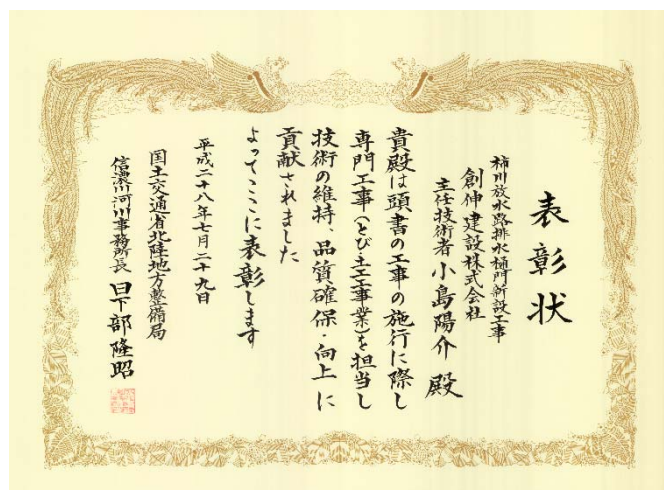 表彰状
柿川放水路排水樋門新設工事
創伸建設株式会社
主任技術者 小島陽介 殿
貴殿は頭書の工事の施行に際し
専門工事(とび・土工工事業)を担当し
技術の維持、品質確保・向上に
貢献されました
よってここに表彰します
平成二十八年七月二十九日
国土交通省北陸地方整備局
信濃川河川事務所長 日下部隆昭